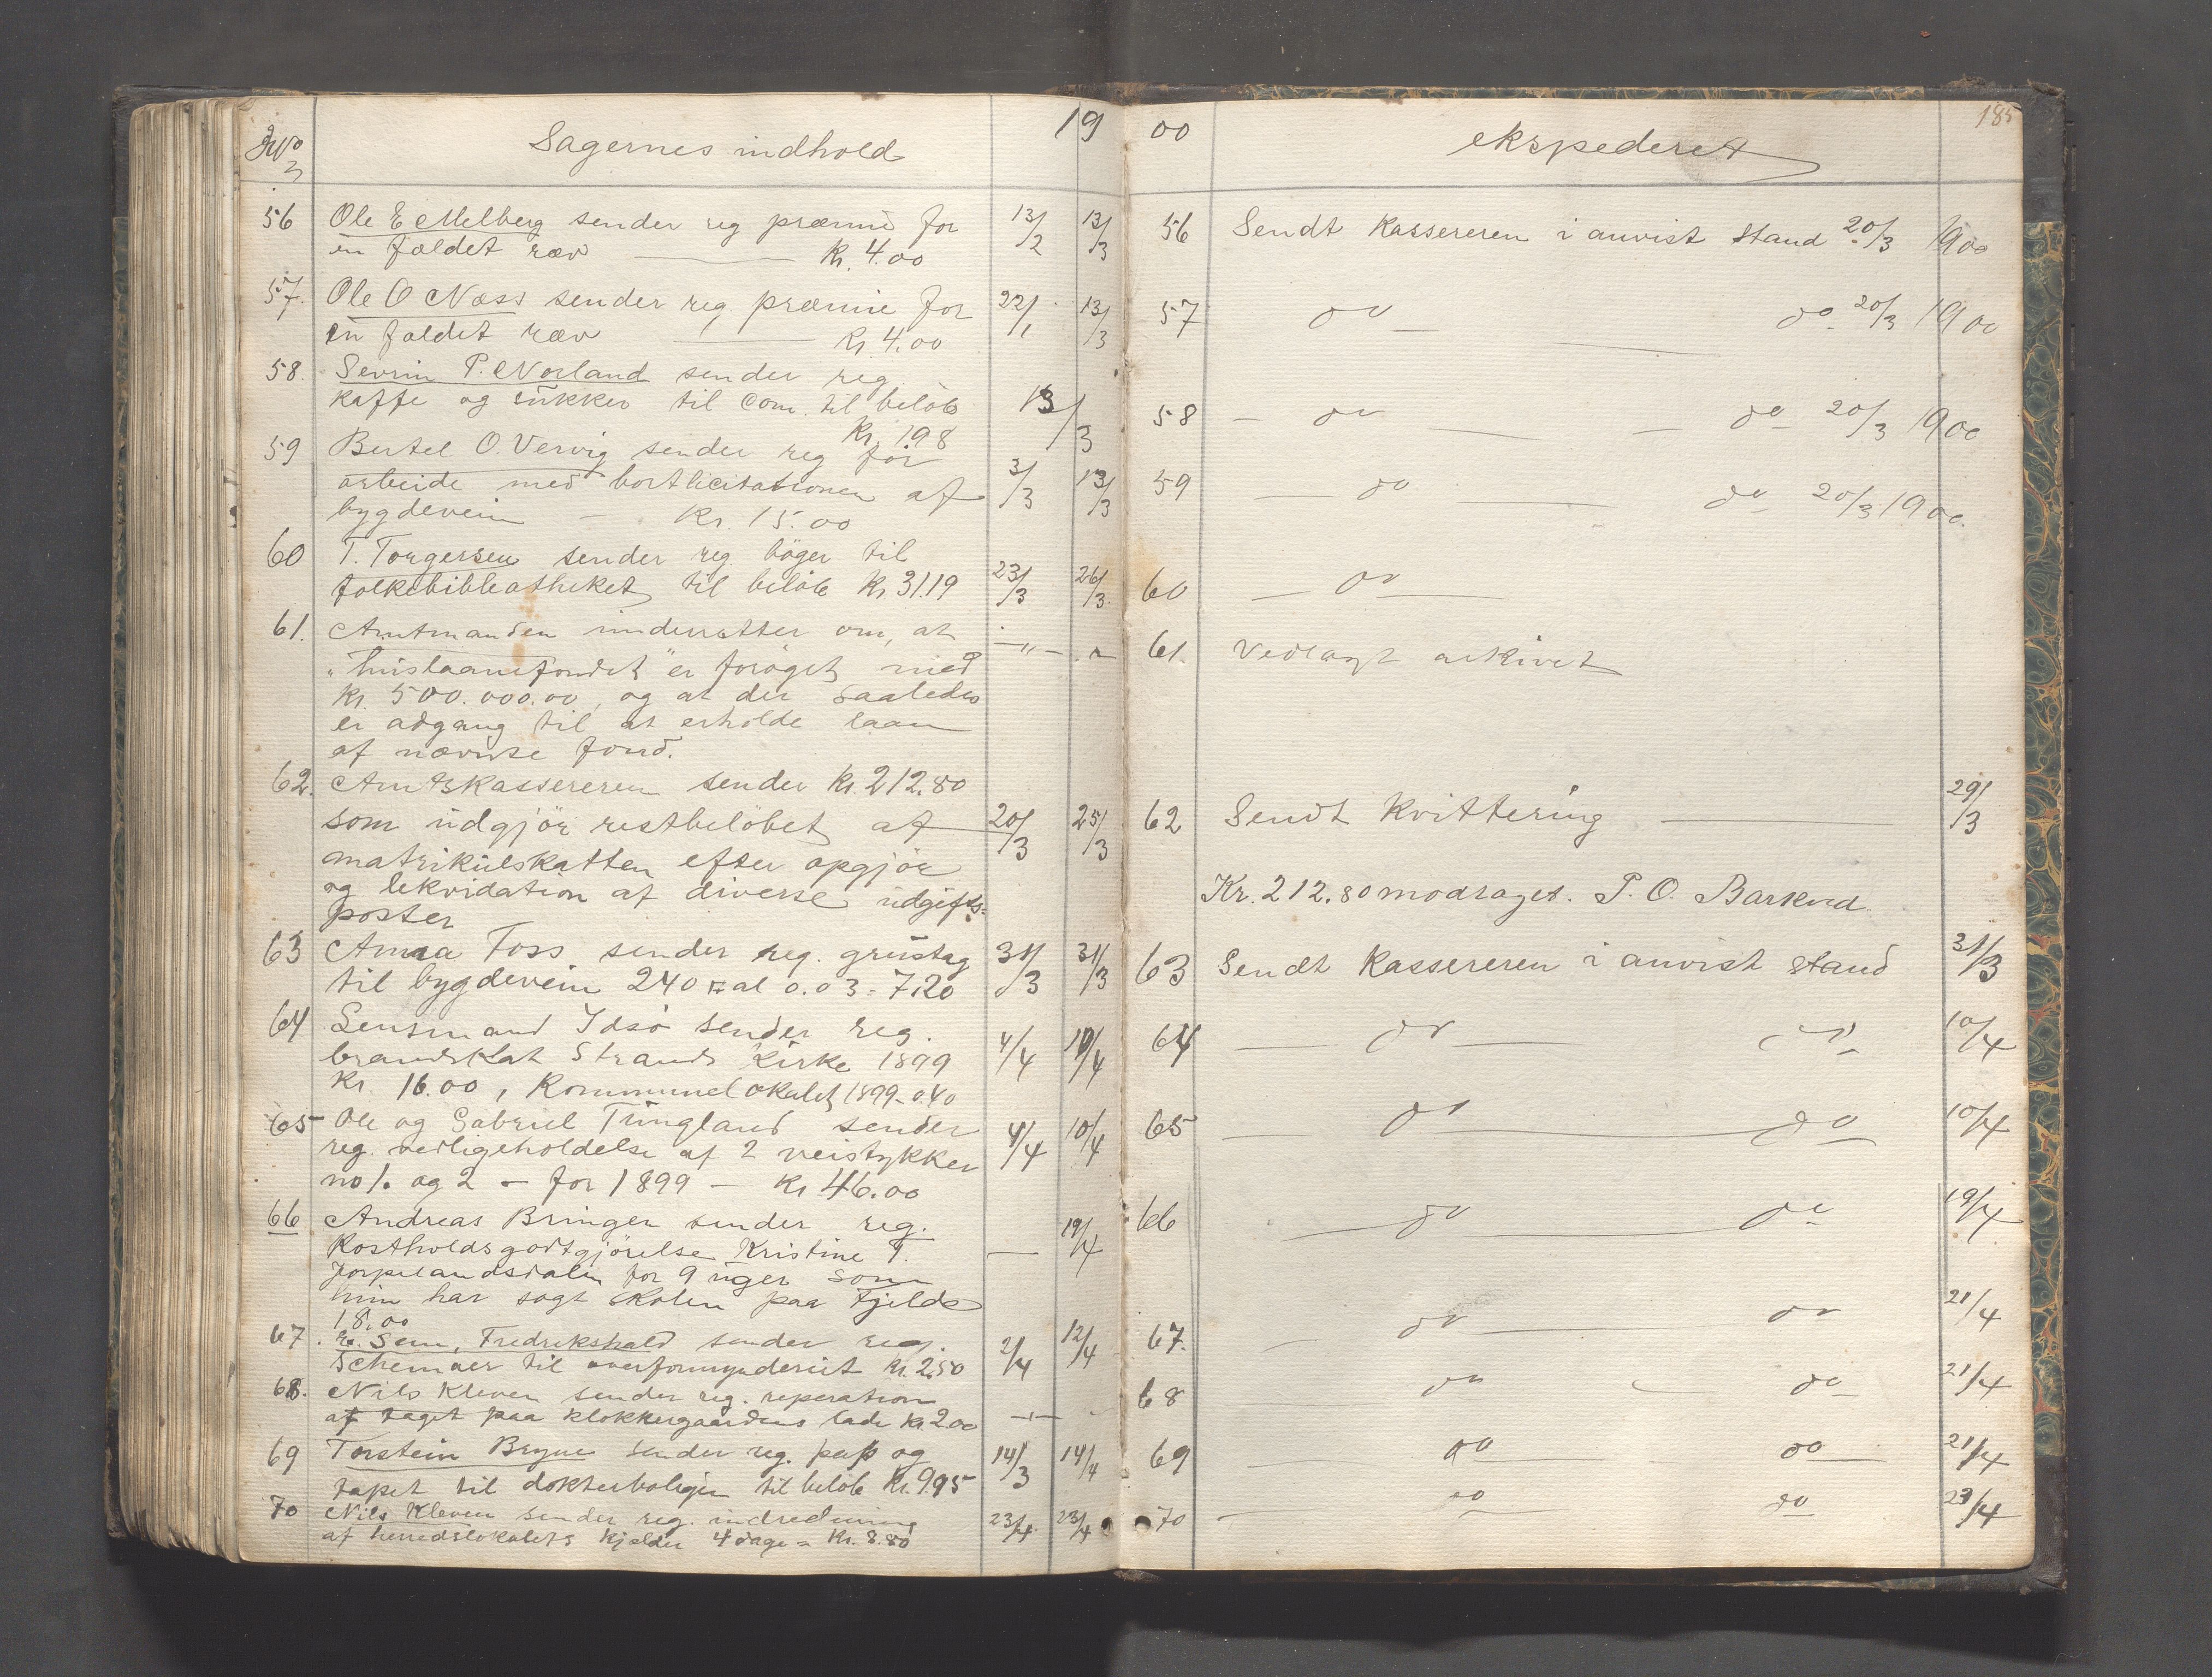 No
Sagernes indhold
19
56 Ole E Melberg sender reg præmie for 13/2 13/3
en fældet ræv — Kr. 4.00
57. Ole O Næss sender reg præmie for 22/1 13/3
en fældet ræv — Kr 4.00
58. Sevrin P. Norland sender reg.
kaffe og sukker til com. til beløb 13/3
Kr. 198
59 Bertel O. Vervig sender reg for
arbeide med bortlicitationen af 3/3 13/3
bygdevein — Kr. 15.00
60 T. Torgersen sender reg. bøger til
folkebibliotheket til beløb Kr 31.19 23/3 26/3
61. Amtmanden underretter om, at
"huslaanefondet" er forøget med —"—
Kr. 500.000.00, og at der saaledes
er adgang til at erholde laan
af nævnte fond.
62. Amtskassereren sender Kr. 212.80
som udgjør restbeløbet af 20/3 25/3
matrikulskatten efter opgjør
og likvidation af diverse udgifts-
poster
63 Anna Foss sender reg. grustag 31/3 31/3
til bygdevein 240 al 0.03 = 7.20
64 Lensmand Idsø sender reg.
brandskat Strands Kirke 1899 4/4 10/4
Kr. 16.00, Kommunelokalet 1899 - 0.40
65 Ole og Gabriel Tungland sender
reg. vedligeholdelse af 2 veistykker 4/4 10/4
no 1. og 2 — for 1899 — Kr 46.00
66 Andreas Bringen sender reg.
Kostholdsgodtgjørelse Kristine T. — 19/4
Jørpelandsdalen for 9 uger som
hun har søgt skolen paa Fjelde
18.00
67. Sem, Fredrikshald sender reg.
Schemaer til overformynderiet Kr. 2.50 2/4 12/4
68. Nils Kleven sender reg. reperation
af taget paa klokkergaardens lade Kr 2.00 —"—
69 Torstein Bryne sender reg. pap og 14/3 14/4
tapet til dokterboligen til beløb Kr. 9.95
70 Nils Kleven sender reg. indredning
af herredslokalets kjelder 4 dage = Kr. 8.80 23/4. 23/4
00
ekspederet
185
56 Sendt Kassereren i anvist stand 20/3 1900
57 do — do 20/3 1900
58 — do — do 20/3 1900
59 — do — do 20/3 1900.
60 — do —
61. Vedlagt arkivet
62 Sendt Kvittering — 29/3
Kr. 212.80 modtaget. P. O. Barkved
63 Sendt Kassereren i anvist stand 31/3
64 — do — do 10/4
65 — do — do 10/4
66 — do — do 19/4
67. — do — do 21/4
68 do — do 21/4
69 — do — do — 21/4
70 — do — do 23/4